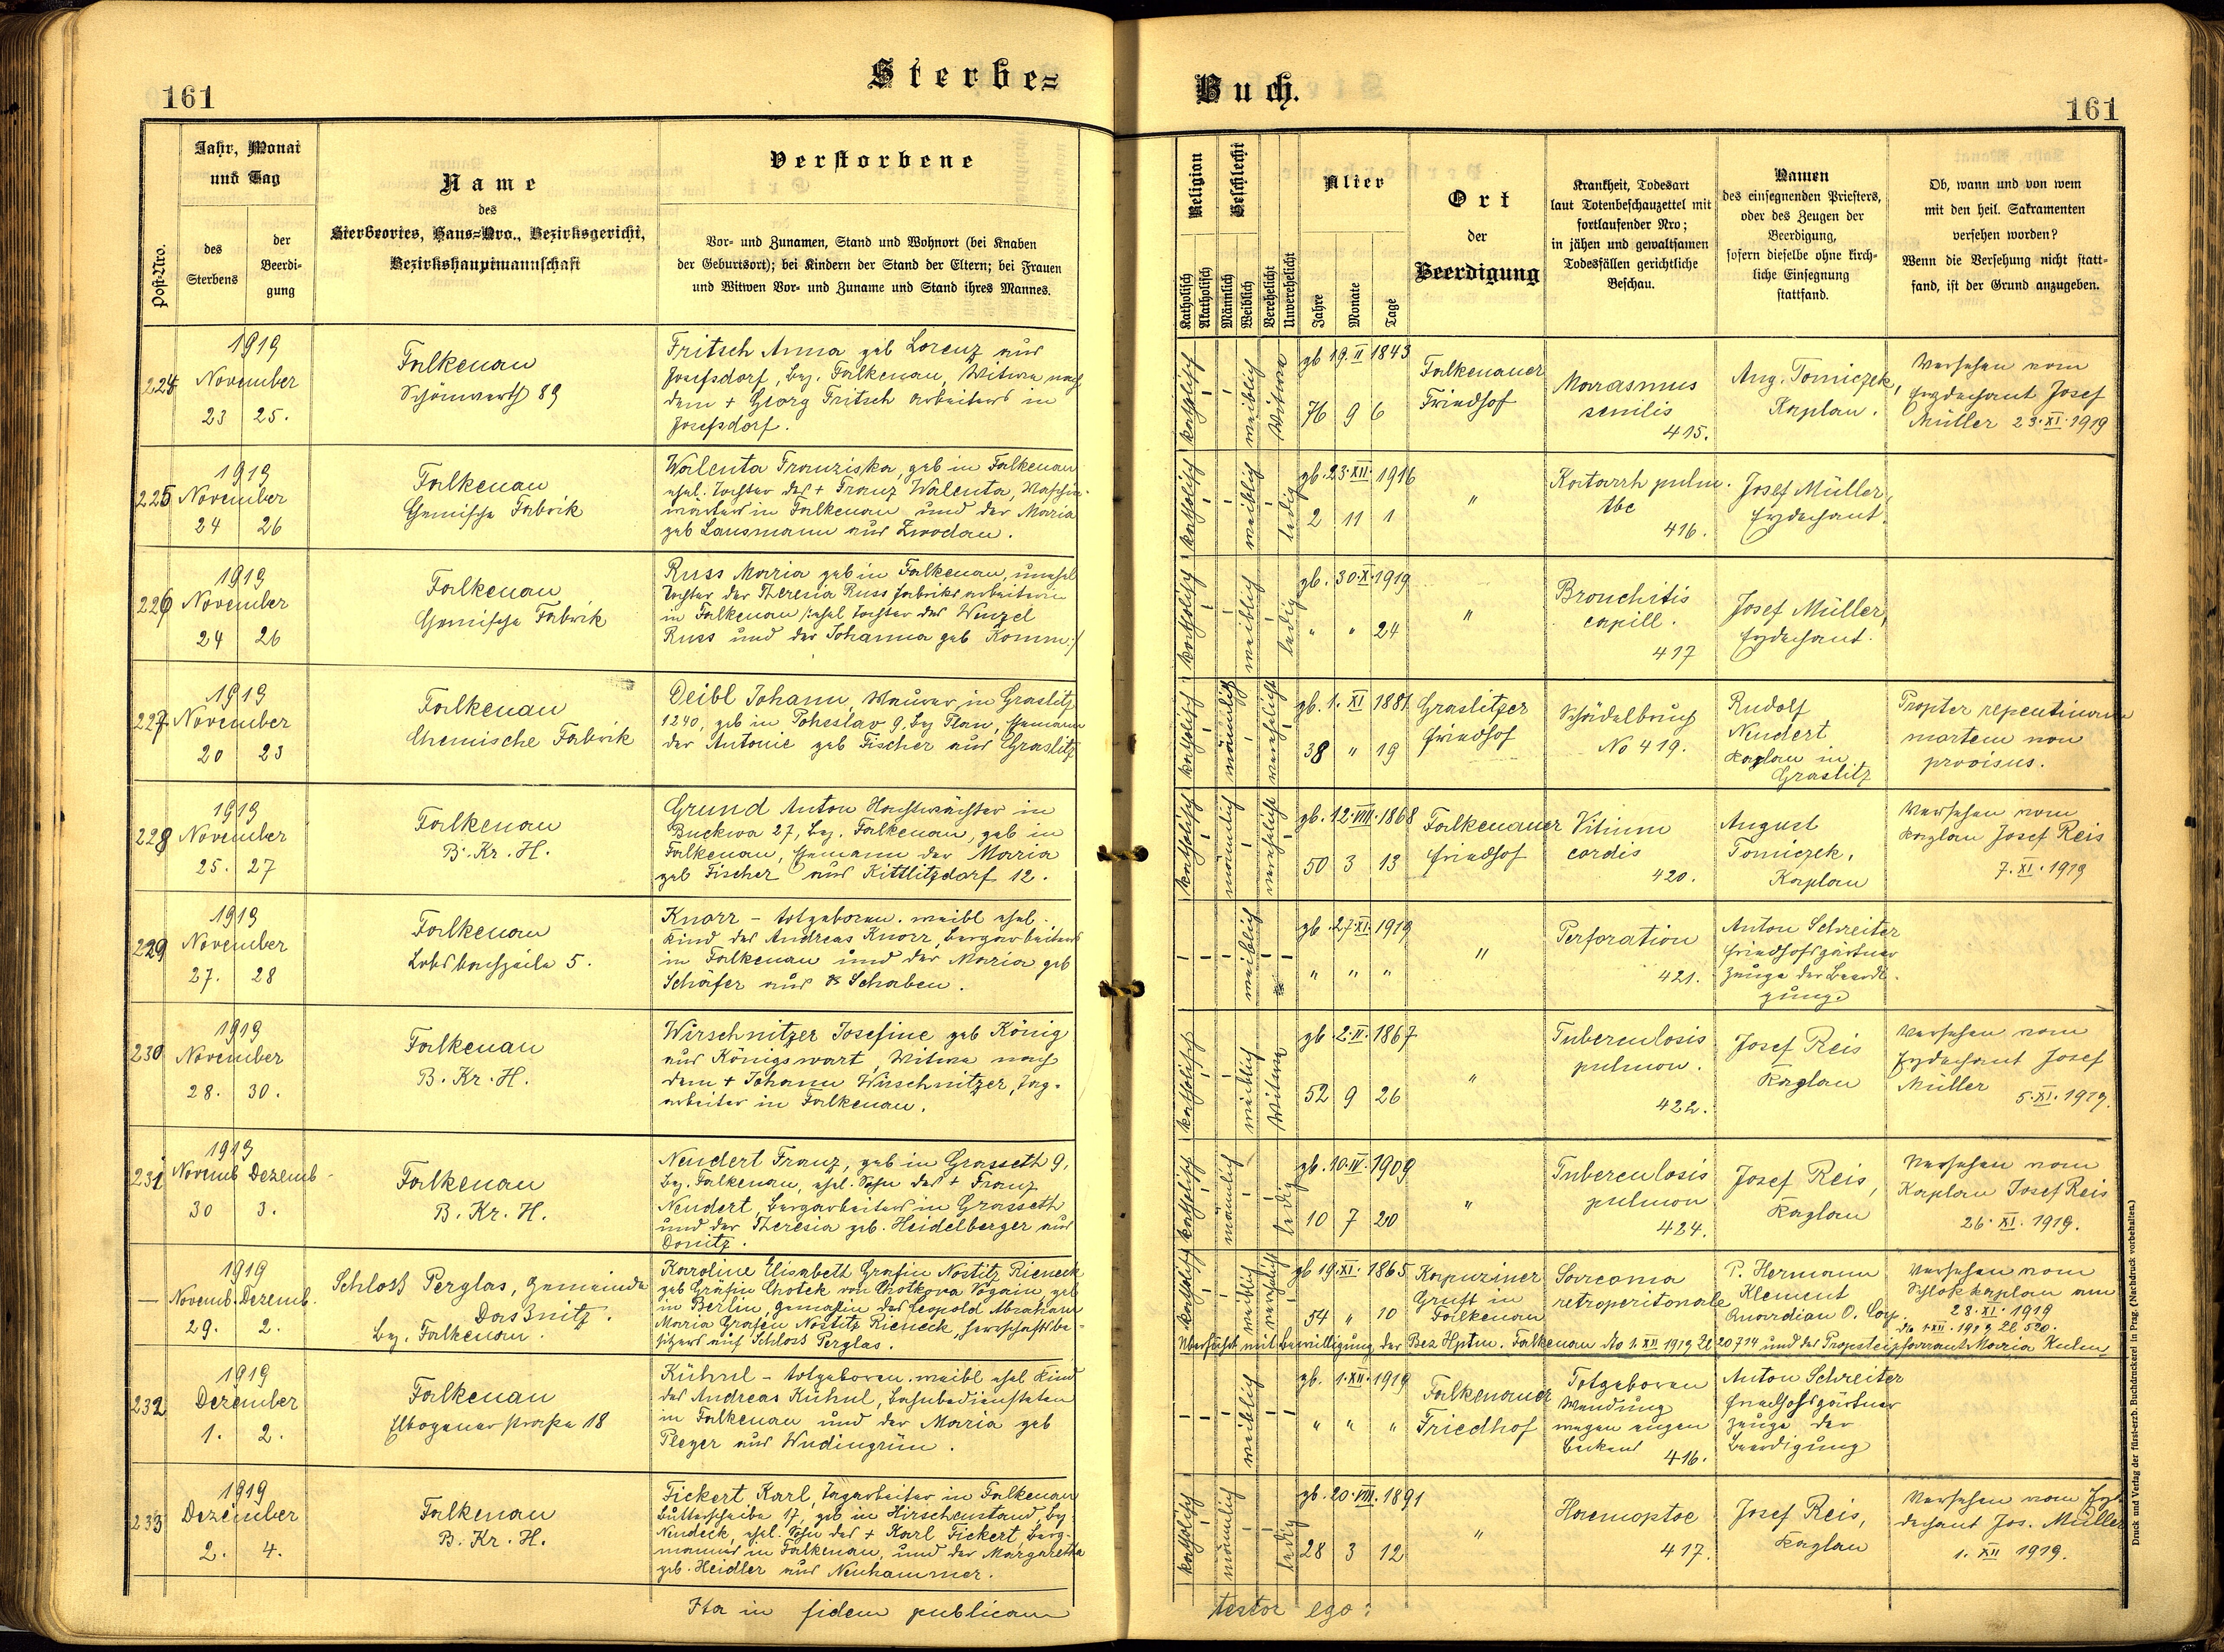 161
Sterbe=
Jahr, Monat
und Tag
Post-Nro.
des
Sterbens
der
Beerdi-
gung
Name
des
Sterbeortes, Haus=Nro., Bezirksgericht,
Bezirkshauptmannschaft
Verstorbene
Vor- und Zunamen, Stand und Wohnort (bei Knaben
der Geburtsort); bei Kindern der Stand der Eltern; bei Frauen
und Witwen Vor- und Zuname und Stand ihres Mannes.
224
1919
November
23 25.
Falkenau
Schönwerth 89
Fritsch Anna geb Lorenz aus
Josefsdorf, bez. Falkenau, Witwe nach
dem + Georg Fritsch Arbeiters in
Josefsdorf.
225
1919
November
24 26
Falkenau
Chemische Fabrik
Walenta Franziska, geb in Falkenau
ehel. Tochter des + Franz Walenta, Maschin-
wärters in Falkenau und der Maria
geb Lausmann aus Zwodau.
226
1919
November
24 26
Falkenau
Chemische Fabrik
Russ Maria geb in Falkenau, unehel
Tochter der Theresia Russ Fabriksarbeiterin
in Falkenau /:ehel Tochter des Wenzel
Russ und der Johanna geb Komm:/
227
1919
November
20 23
Falkenau
Chemische Fabrik
Deibl Johann, Maurer in Graslitz
1240, geb in Poheslav 9, bez Plan, Ehemann
der Antonie geb Fischer aus Graslitz
228
1919
November
25. 27
Falkenau
B. Kr. H.
Grund Anton Nachtwächter in
Buckwa 27, bez. Falkenau, geb in
Falkenau, Ehemann der Maria
geb Fischer aus Kittlitzdorf 12.
229
1919
November
27. 28
Falkenau
Lobsbachzeile 5.
Knorr – totgeboren. weibl ehel.
Kind des Andreas Knorr, Bergarbeiters
in Falkenau und der Maria geb
Schäfer aus Schaben.
230
1919
November
28. 30.
Falkenau
B. Kr. H.
Wirschnitzer Josefine geb König
aus Königswart, Witwe nach
dem + Johann Wirschnitzer, Tag-
arbeiter in Falkenau.
231
1919
Novemb Dezemb.
30 3.
Falkenau
B. Kr. H.
Neudert Franz, geb in Grasseth 9,
bez. Falkenau, ehel. Sohn des + Franz
Neudert, Bergarbeiters in Grasseth
und der Theresia geb. Heidelberger aus
Donitz.
—
1919
Novemb. Dezemb.
29. 2.
Schloss Perglas, Gemeinde
Dassnitz.
bez. Falkenau.
Karoline Elisabeth Grafin Nostitz Rieneck
geb Gräfin Chotek von Chotkowa Wogain, geb
in Berlin, gemahlin des Leopold Abraham
Maria Grafen Nostitz Rieneck, Herrschaftsbe-
sitzers auf Schloss Perglas.
232
1919
Dezember
1. 2.
Falkenau
Elbogenerstrasse 18
Kühnl – totgeboren. weibl ehel Kind
des Andreas Kühnl, Bahnbediensteten
in Falkenau und der Maria geb
Pleyer aus Wudingrün.
233
1919
Dezember
2. 4.
Falkenau
B. Kr. H.
Fickert Karl, Tagarbeiter in Falkenau
Butterscheibe 17, geb in Hirschenstand, bez
Neudeck, ehel. Sohn des + Karl Fickert, Berg-
mannes in Falkenau, und der Margaretha
geb. Heidler aus Neuhammer.
Ita in fidem publicam
Buch.
161
Religion
Katholisch
Akatholisch
Geschlecht
Männlich
Weiblich
Verehelicht
Unverehelicht
Alter
Jahre
Monate
Tage
Ort
der
Beerdigung
Krankheit, Todesart
laut Totenbeschauzettel mit
fortlaufender Nro;
in jähen und gewaltsamen
Todesfällen gerichtliche
Beschau.
Namen
des einsegnenden Priesters,
oder des Zeugen der
Beerdigung,
sofern dieselbe ohne kirch-
liche Einsegnung
stattfand.
Ob, wann und von wem
mit den heil. Sakramenten
versehen worden?
Wenn die Versehung nicht statt-
fand, ist der Grund anzugeben.
katholisch
weiblich
Witwe
gb 19. II 1843
76 9 6
Falkenauer
Friedhof
Marasmus
senilis
415.
Aug. Tomiczek,
Kaplan.
Versehen vom
Erzdechant Josef
Müller 23. XI. 1919
katholisch
weiblich
ledig
gb. 23. XII. 1916
2 11 1
"
Katarrh pulm.
tbc
416.
Josef Müller,
Erzdechant.
katholisch
weiblich
ledig
gb. 30. X. 1919
" " 24
"
Bronchitis
capill.
417
Josef Müller,
Erzdechant.
katholisch
männlich
verehelicht
gb. 1. XI 1881
38 " 19
Graslitzer
Friedhof
Schädelbruch
No 419.
Rudolf
Neudert
Kaplan in
Graslitz
Propter repentinam
mortem non
provisus.
katholisch
männlich
verehelicht
gb. 12. VIII. 1868
50 3 13
Falkenauer
Friedhof
Vitium
cordis
420.
August
Tomiczek,
Kaplan
Versehen vom
Kaplan Josef Reis
7. XI. 1919
weiblich
gb 27. XI. 1919
" " "
"
Perforation
421.
Anton Schreiter
Friedhofsgärtner
Zeuge der Beerdi-
gung.
katholisch
weiblich
Witwe
gb 2. II. 1867
52 9 26
"
Tuberculosis
pulmon.
422.
Josef Reis
Kaplan
Versehen vom
Erzdechant Josef
Müller
5. XI. 1919.
katholisch
männlich
ledig
gb. 10. IV. 1909
10 7 20
"
Tuberculosis
pulmon
424.
Josef Reis,
Kaplan
Versehen vom
Kaplan Josef Reis
26. XI. 1919.
katholisch
weiblich
verehelicht
gb 19. XI. 1865
54 " 10
Kapuziner
Gruft in
Falkenau
Sarcoma
retroperitonale
P. Hermann
Klement
Quardian O. Cap.
Versehen vom
Schlosskaplan am
28. XI. 1919
dto 1. XII. 1919 Zl 520.
Überführt mit Bewilligung der Bez Hptm. Falkenau dto 1. XII 1919 Zl 20714 und des Propsteipfarramt Maria Kulm
weiblich
gb. 1. XII. 1919
" " "
Falkenauer
Friedhof
Totgeboren
Wendung
wegen engen
Beckens
416.
Anton Schreiter
Friedhofsgärtner
Zeuge der
Beerdigung
katholisch
männlich
ledig
gb. 20. VIII. 1891
28 3 12
"
Haemoptoe
417.
Josef Reis,
Kaplan
Versehen vom Erz-
dechant Jos. Müller
1. XII 1919.
testor ego:
Druck und Verlag der fürst-erzb. Buchdruckerei in Prag. (Nachdruck vorbehalten.)